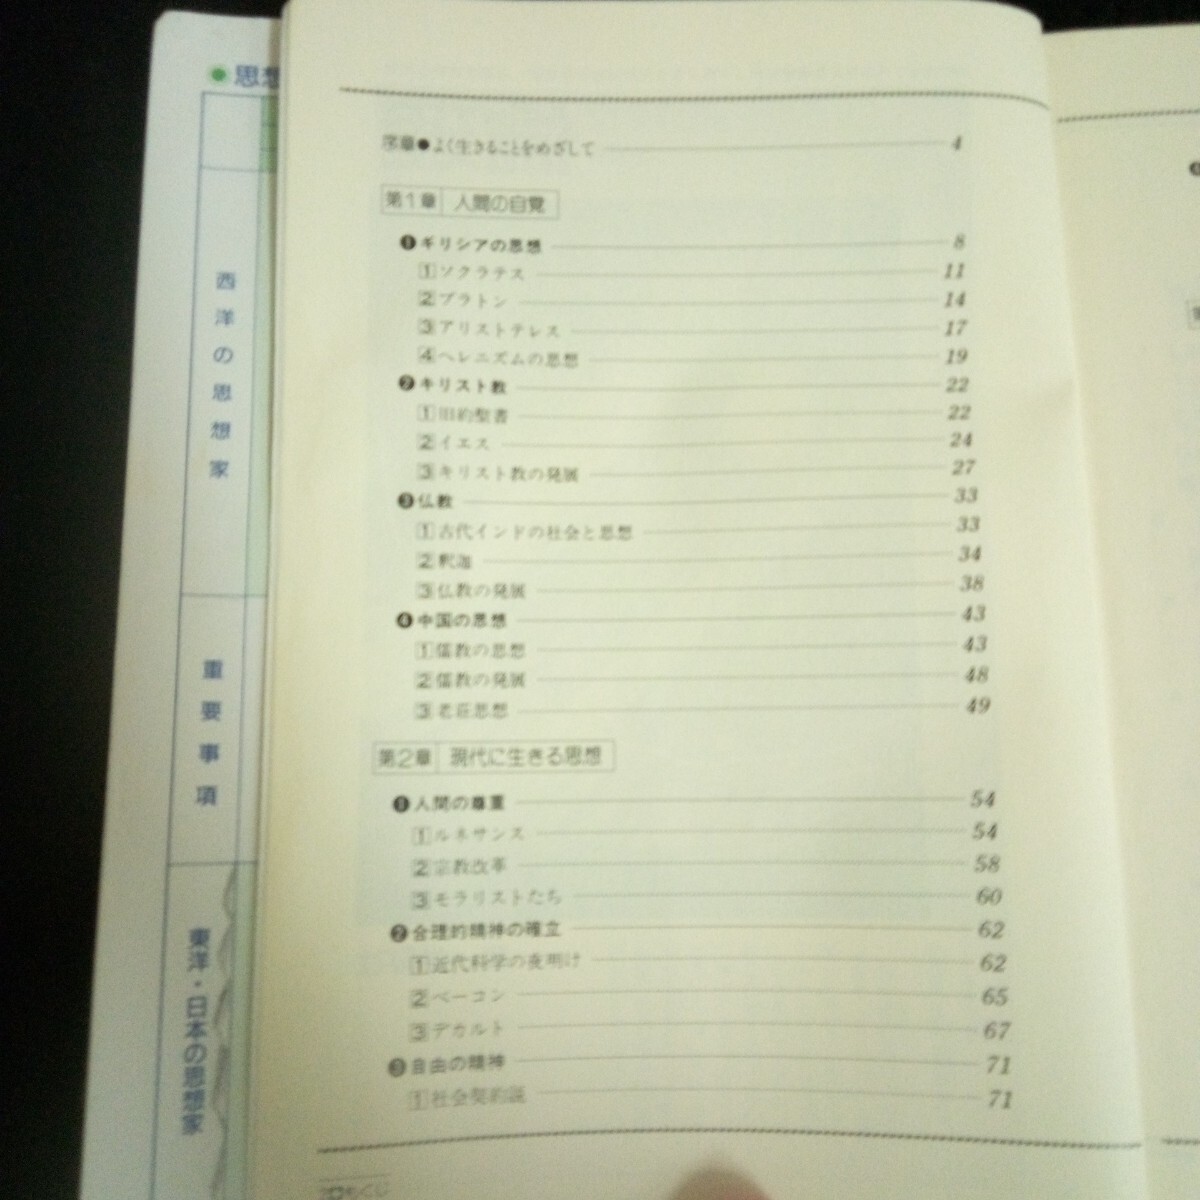 思想
西洋の思想家
重要事項
東洋・日本の思想家
序章●よく生きることをめざして 4
第1章 人間の自覚
❶ギリシアの思想 8
1ソクラテス 11
2プラトン 14
3アリストテレス 17
4ヘレニズムの思想 19
❷キリスト教 22
1旧約聖書 22
2イエス 24
3キリスト教の発展 27
❸仏教 33
1古代インドの社会と思想 33
2釈迦 34
3仏教の発展 38
❹中国の思想 43
1儒教の思想 43
2儒教の発展 48
3老荘思想 49
第2章 現代に生きる思想
❶人間の尊重 54
1ルネサンス 54
2宗教改革 58
3モラリストたち 60
❷合理的精神の確立 62
1近代科学の夜明け 62
2ベーコン 65
3デカルト 67
❸自由の精神 71
1社会契約説 71
もくじ